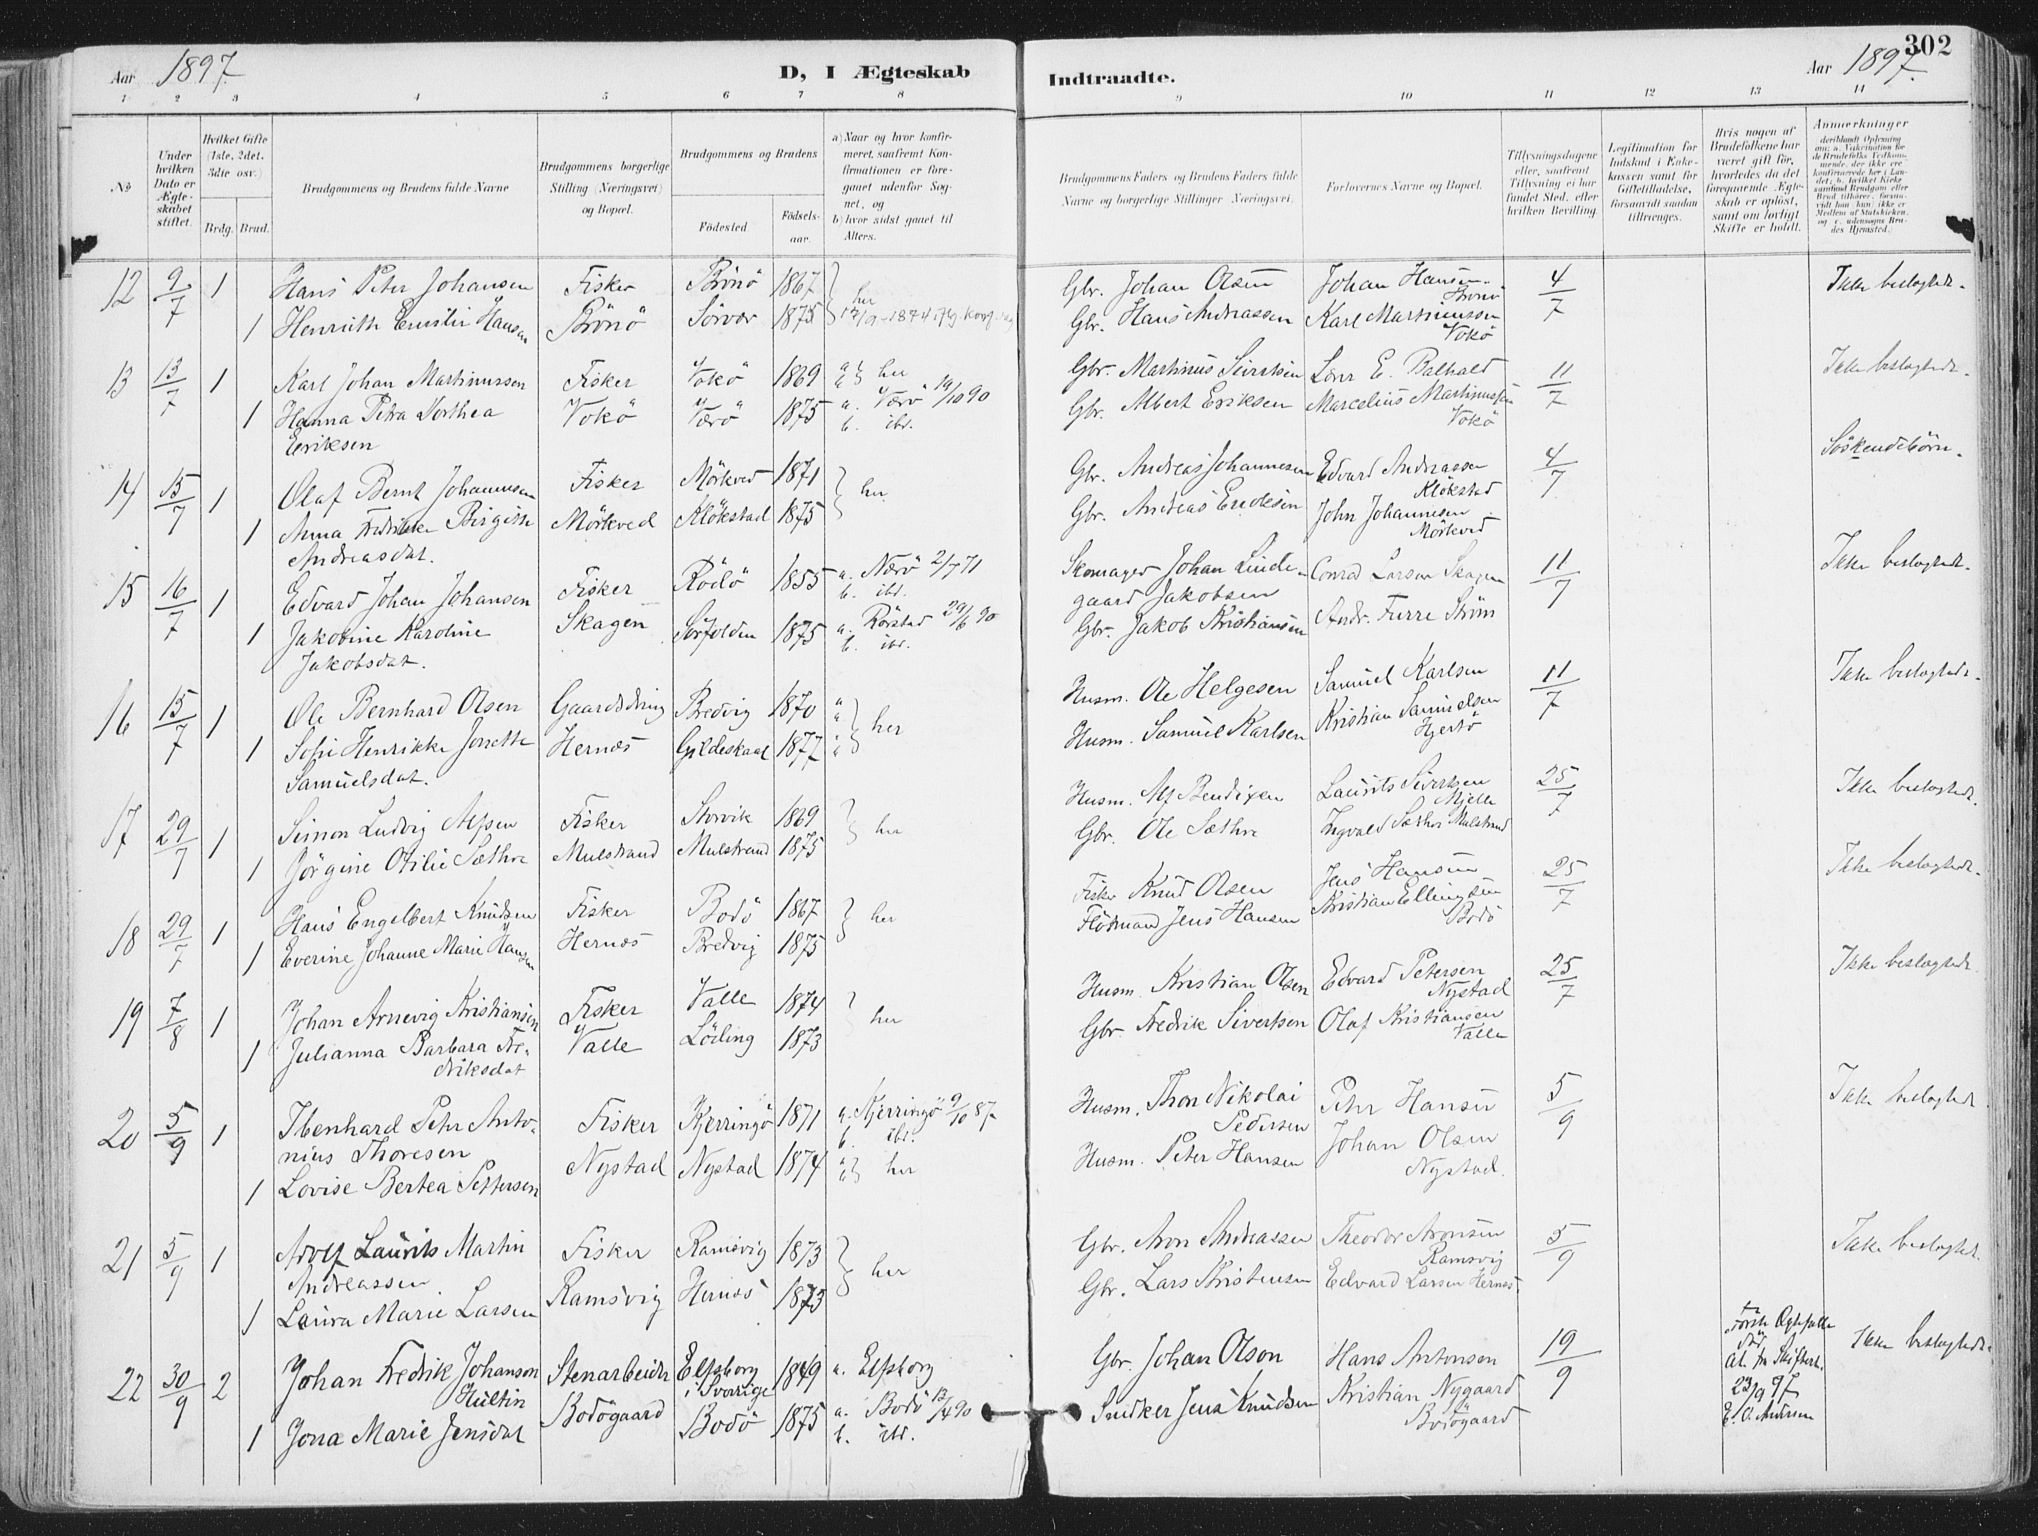 302
Aar 1897.
D, I Ægteskab
Indtraadte.
Aar 1897.
1 2 3 4 5 6 7 8 9 10 11 12 13 14
No
Under hvilken Dato er Ægteskabet stiftet.
Hvilket Gifte (1ste, 2det, 3die osv.)
Brdg. Brud.
Brudgommens og Brudens fulde Navne
Brudgommens borgerlige Stilling (Næringsvei) og Bopæl.
Brudgommens og Brudens
Fødested
Fødsels-aar.
a) Naar og hvor konfirmeret, saafremt Konfirmationen er foregaaet udenfor Sognet, og
b) hvor sidst gaaet til Alters.
Brudgommens Faders og Brudens Faders fulde Navne og borgerlige Stillinger (Næringsvei).
Forlovernes Navne og Bopæl.
Tillysningsdagene eller, saafremt Tillysning ei har fundet Sted, efter hvilken Bevilling.
Legitimation for Indskud i Enkekassen samt for Giftetilladelse, forsaavidt saadan tiltrænges.
Hvis nogen af Brudefolkene har været gift før, hvorledes da det foregaaende Ægteskab er opløst, samt om lovligt Skifte er holdt.
Anmærkninger
12 9/7 1 Hans Peter Johansen Fisker Brönö 1867 her Gbr. Johan Olsen Johan Hansen Brönö 4/7 Ikke beslægtede.
1 Henriette Emilie Hansen Brönö Sörvær 1875 Gbr. Hans Andreassen Karl Martinussen Vokö
13 13/7 1 Karl Johan Martinussen Fisker Vokö 1869 a. b. her Gbr. Martinus Sivertsen Lærer E. Balhald 11/7 Ikke beslægtede.
1 Hanna Petra Dorthea Eriksen Vokö Værö 1875 a. Værö 19/10 90 b. ibd. Gbr. Albert Eriksen Marcelius Martinussen Vokö
14 15/7 1 Olaf Bernt Johannesen Fisker Mörkved 1871 her Gbr. Andreas Johannesen Edvard Andreassen Klökstad 4/7 Söskendebörn.
1 Anna Fredrikke Birgitte Andreasdat. Mörkved Klökstad 1875 Gbr. Andreas Enoksen John Johannesen Mörkved
15 16/7 1 Edvard Johan Johansen Fisker Rödö 1855 a. Nærö 2/7 71 b. ibd. Skomager Johan Lindegaard Jakobsen Conrad Larsen Skagen 11/7 Ikke beslægtede.
1 Jakobine Karoline Jakobsdat. Skagen Sörfolden 1875 a. Rörstad 29/6 90 b. ibd. Gbr. Jakob Kristiansen Andr. Furre Ström
16 15/7 1 Ole Bernhard Olsen Gaardsdreng Bredvig 1870 her Husm. Ole Helgesen Samuel Karlsen 11/7 Ikke beslægtede.
1 Sofie Henrikke Jonette Samuelsdat. Hernes Gildeskaal 1877 Husm. Samuel Karlsen Kristian Samuelsen Hjertö
17 29/7 1 Simon Ludvig Alfsen Fisker Storvik 1869 her Husm. Alf Bendixen Laurits Sivertsen Mjelle 25/7 Ikke beslægtede.
1 Jörgine Otilie Sæthre Mulstrand Mulstrand 1875 Gbr. Ole Sæthre Ingvald Sæther Mulstrand
18 29/7 1 Hans Engelbert Knudsen Fisker Bodö 1867 her Fisker Knud Olsen Jens Hansen 25/7 Ikke beslægtede.
1 Everine Johanne Marie Hansen Hernes Bredvig 1875 Flödmand Jens Hansen Kristian Ellingsen Bodö
19 7/8 1 Johan Arnevig Kristiansen Fisker Valle 1874 her Husm. Kristian Olsen Edvard Petersen Nystad 25/7 Ikke beslægtede.
1 Julianna Barbara Fredriksdat Valle Löding 1873 Gbr. Fredrik Sivertsen Olaf Kristiansen Valle
20 5/9 1 Ibenhard Peter Antonius Thoresen Fisker Kjerringö 1871 a. Kjerringö 9/10 87 b. ibd. Husm. Thor Nikolai Pedersen Peter Hansen 5/9 Ikke beslægted.
1 Lovise Bertea Pettersen Nystad Nystad 1874 a. b. her Husm. Peter Hansen Johan Olsen Nystad.
21 5/9 1 Adolf Laurits Martin Andreassen Fisker Ramsvig 1873 her Gbr. Aron Andreassen Theodor Aronsen Ramsvig 5/9 Ikke beslægted.
1 Laura Marie Larsen Ramsvig Hernes 1873 Gbr. Lars Kristensen Edvard Larsen Hernes.
22 30/9 2 Johan Fredrik Johanson Hultin Stenarbeider Elfsborg i Sverrige 1849 a. Elfsborg Gbr. Johan Olson Hans Antonsen 19/9 Förste Ægtefælle död at. fra Skifter. 23/9 97 E. O. Andersen Ikke beslægtede.
1 Jona Marie Jensdat Bodögaard Bodö 1875 a. Bodö 13/4 90 b. ibd. Snedker Jens Knudsen Kristian Nygaard Bodögaard